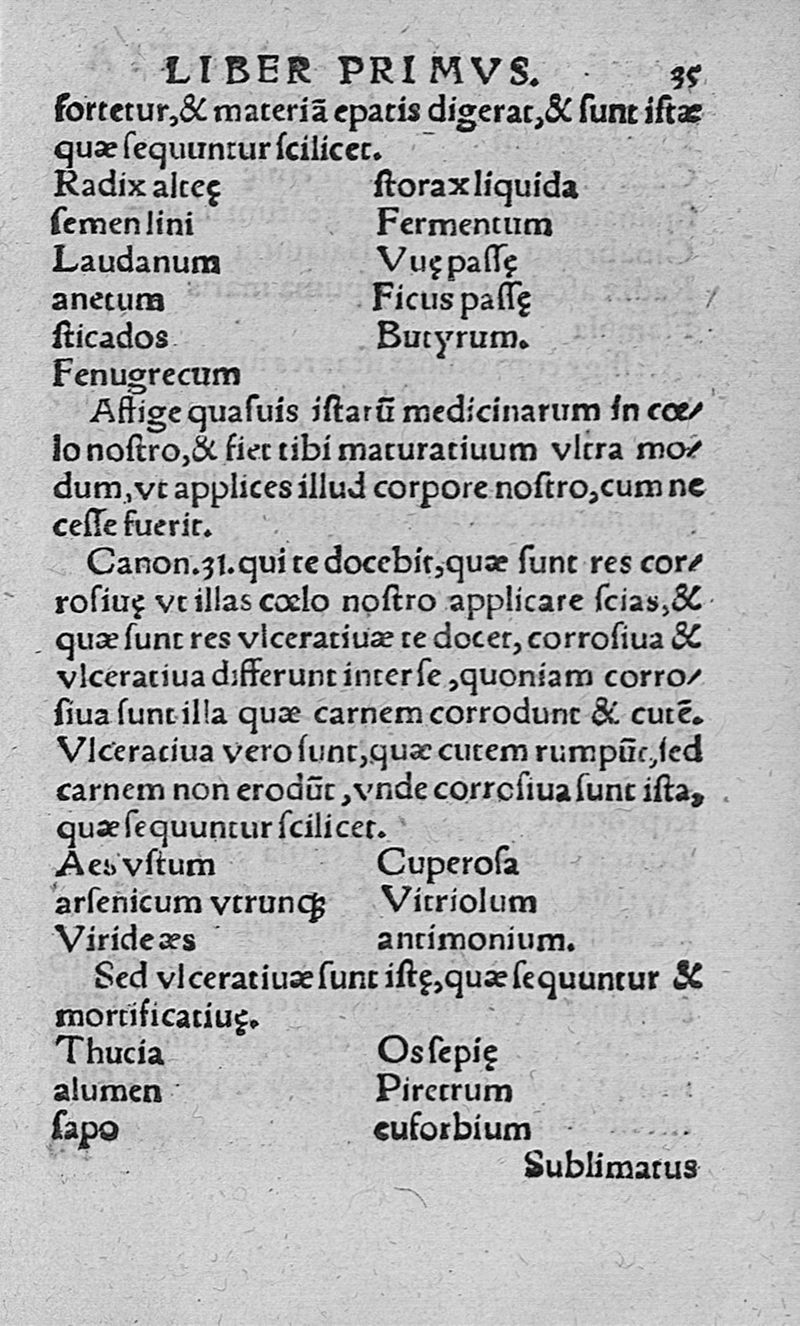 LIBER PRIMVS. 35
fortetur,& materiā epatis digerat,& ſunt iſtæ
quæ ſequuntur ſcilicet.
Radix alteę ſtorax liquida
ſemen lini Fermentum
Laudanum Vuę paſſę
anetum Ficus paſſę
ſticados Butyrum.
Fenugrecum
Affige quaſuis iſtarū medicinarum in cœ⸗
lo noſtro,& fiet tibi maturatiuum vltra mo⸗
dum,vt applices illud corpore noſtro,cum ne
ceſſe fuerit.
Canon.31.qui te docebit,quæ ſunt res cor⸗
roſiuę vt illas cœlo noſtro applicare ſcias,&
quæ ſunt res vlceratiuæ te docet, corroſiua &
vlceratiua differunt inter ſe ,quoniam corro⸗
ſiua ſunt illa quæ carnem corrodunt & cutē.
Vlceratiua vero ſunt,quæ cutem rumpūt,ſed
carnem non erodūt ,vnde corroſiua ſunt iſta,
quæ ſequuntur ſcilicet.
Aes vſtum Cuperoſa
arſenicum vtrunqꝫ Vitriolum
Viride æs antimonium.
Sed vlceratiuæ ſunt iſtę,quæ ſequuntur &
mortificatiuę.
Thucia Os ſepię
alumen Piretrum
ſapo euforbium
Sublimatus